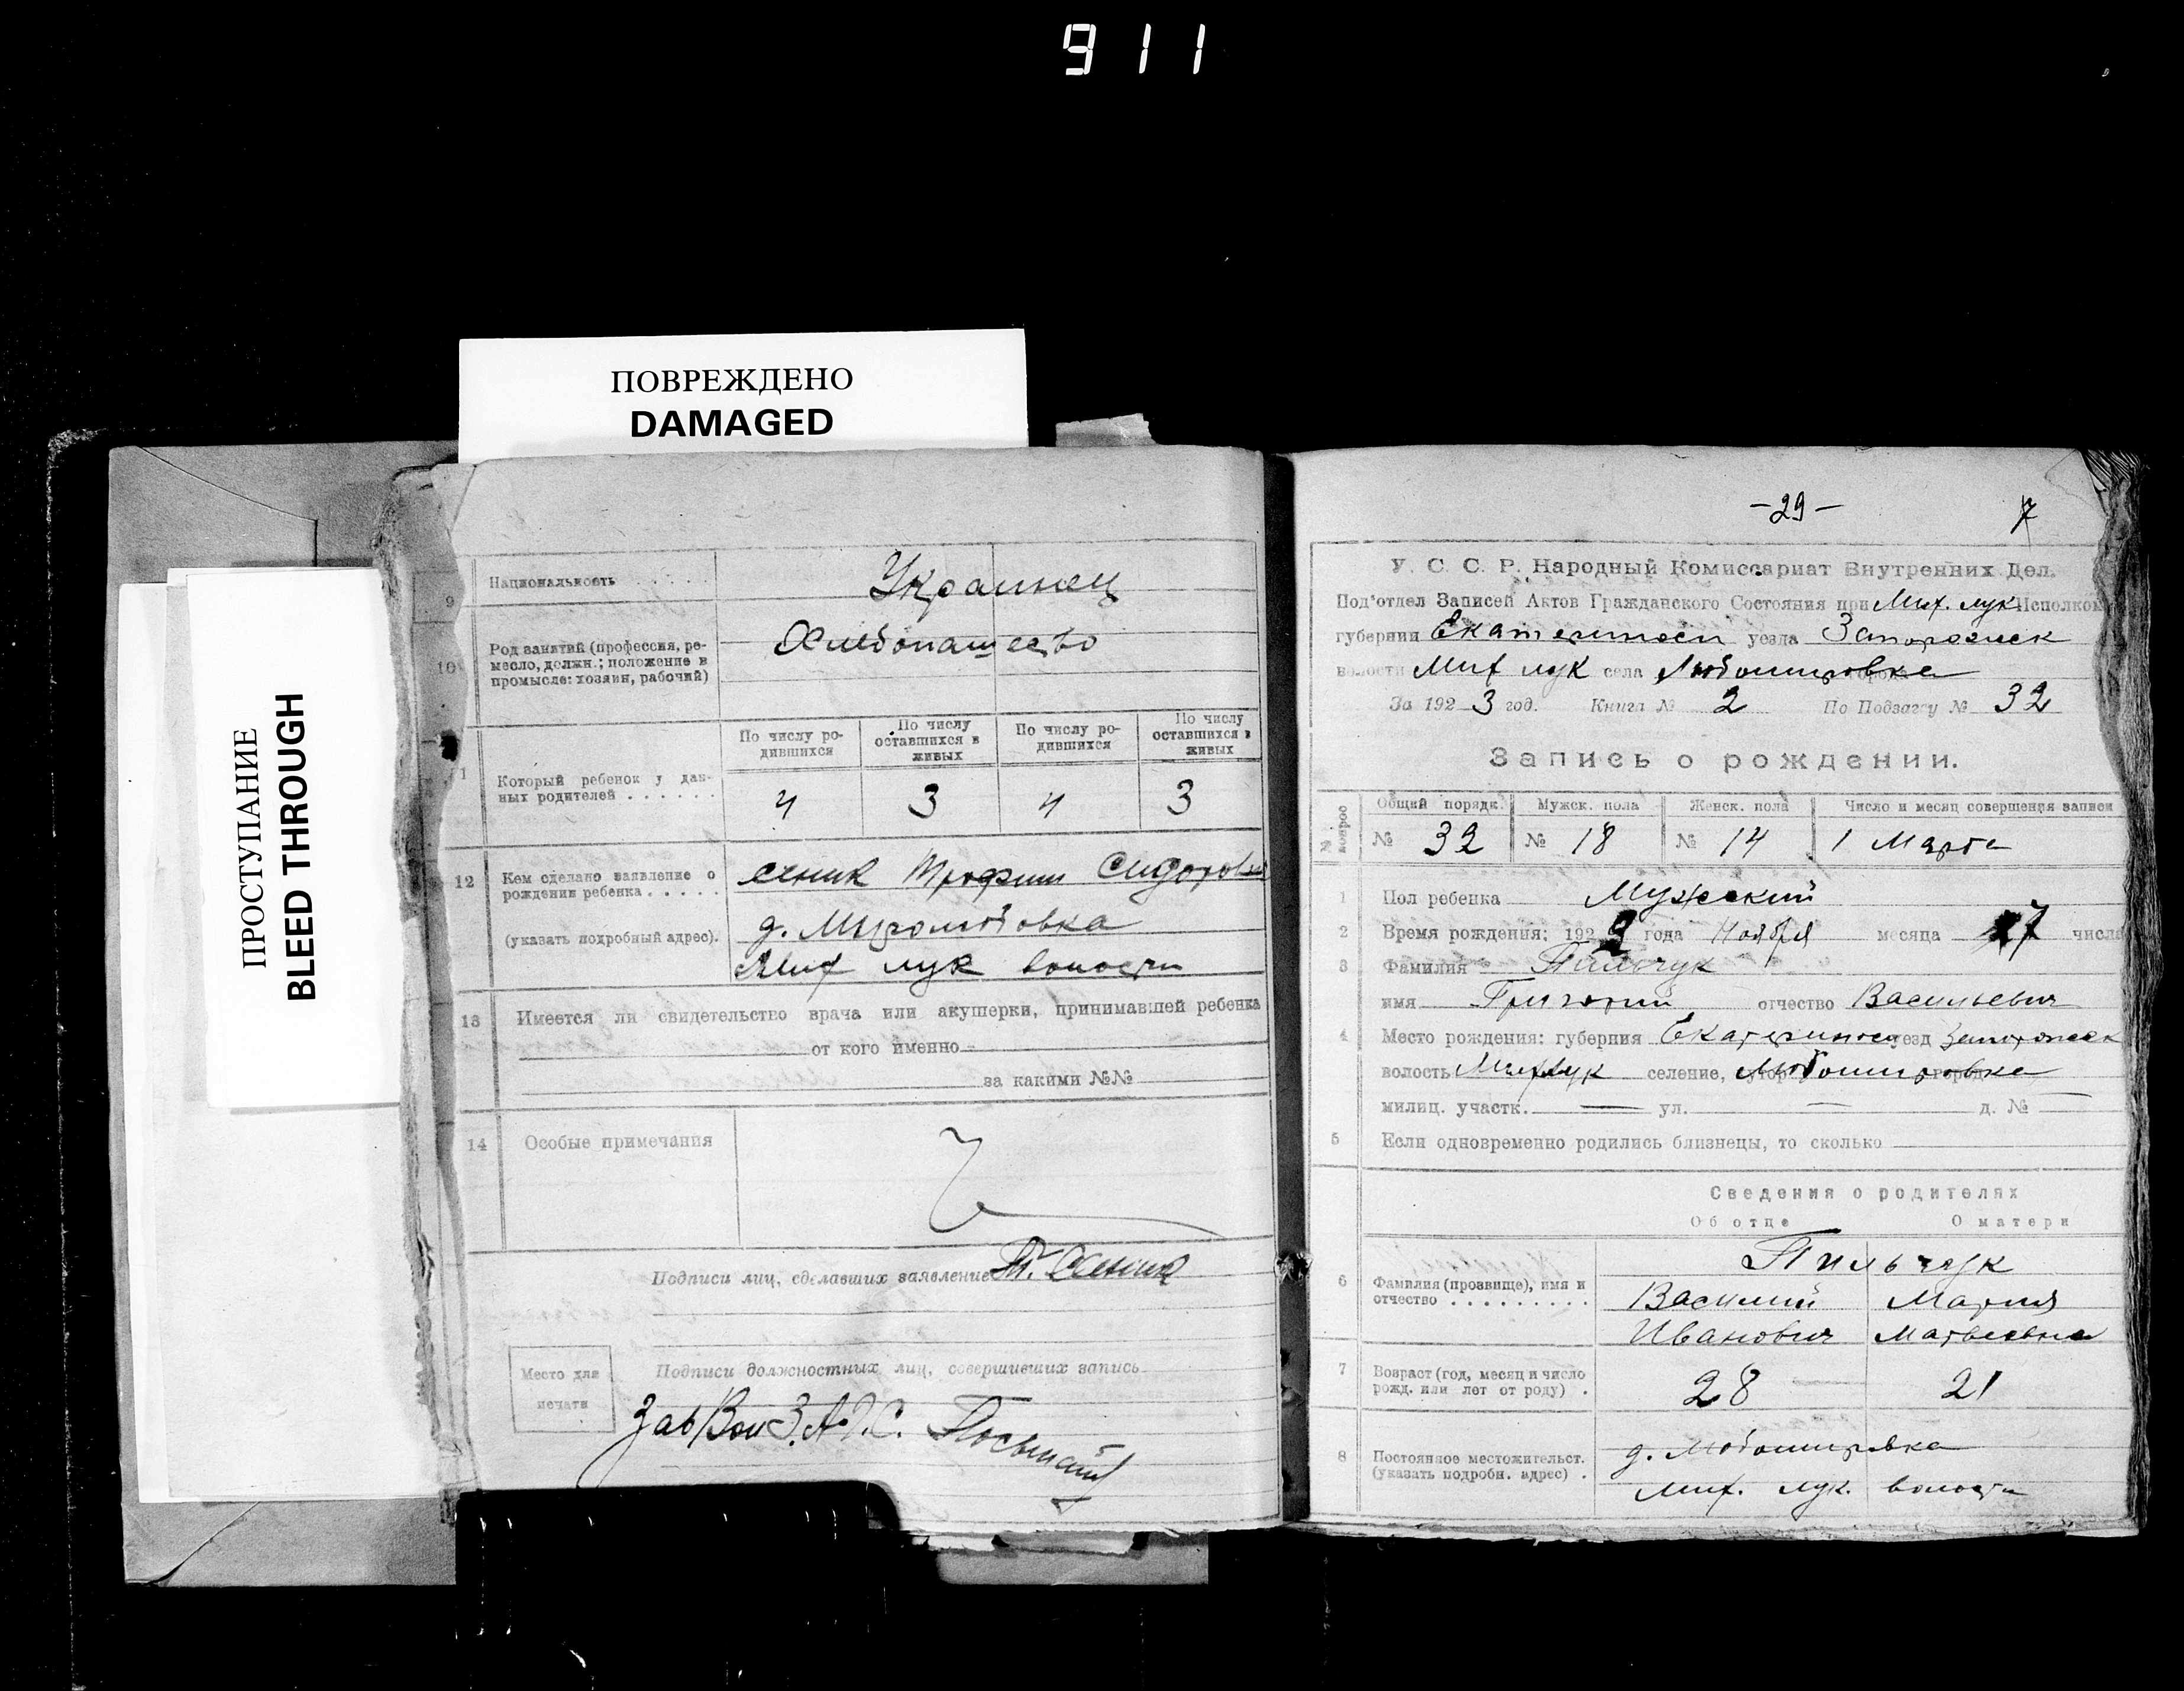 911
ПОВРЕЖДЕНО
DAMAGED
ПРОСТУПАНИЕ
BLEED THROUGH
9 Национальность . . . . . Украинец
10 Род занятий (профессия, ре-
месло, должн.; положение в
промысле: хозяин, рабочий)
Хлебопашество
По числу ро-
дившихся
По числу
оставшихся в
живых
По числу ро-
дившихся
По числу
оставшихся в
живых
Который ребенок у дан-
ных родителей . . . . . .
4 3 4 3
12 Кем сделано заявление о
рождении ребенка . . . . .
(указать подробный адрес).
Трофим Сидорович
д. Миролюбовка
Мих лук волости
13 Имеется ли свидетельство врача или акушерки, принимавшей ребенка
от кого именно
за какими №№
14 Особые примечания
Подписи лиц, сделавших заявление
Место для
печати
Подписи должностных лиц, совершивших запись
Зав Вол З.А.Г.С.
-29- 7
У. С. С. Р. Народный Комиссариат Внутренних Дел.
Под'отдел Записей Актов Гражданского Состояния при Мих. лук Исполком
губернии Екатериносл уезда Запорожск
волости Мих лук села Любомировка
За 1923 год. Книга № 2 По Подзагсу № 32
Запись о рождении.
Общий порядк. Мужск. пола Женск. пола Число и месяц совершения записи
№ 32 № 18 № 14 1 Марта
1 Пол ребенка Мужеский
2 Время рождения: 1922 года Ноября месяца 17 числа
3 Фамилия Пильчук
имя Григорий отчество Васильевич
4 Место рождения: губерния Екатеринос уезд Запорожск
волость Михлук селение, Любомировка
милиц. участк. — ул. — д. №
5 Если одновременно родились близнецы, то сколько
Сведения о родителях
Об отце О матери
6 Фамилия (прозвище), имя и
отчество . . . . . . . . .
Пильчук
Василий Мария
Иванович Матвеевна
7 Возраст (год, месяц и число
рожд. или лет от роду) .
28 21
8 Постоянное местожительст.
(указать подробн. адрес) .
д. Любомировка
Мих. лук. волости